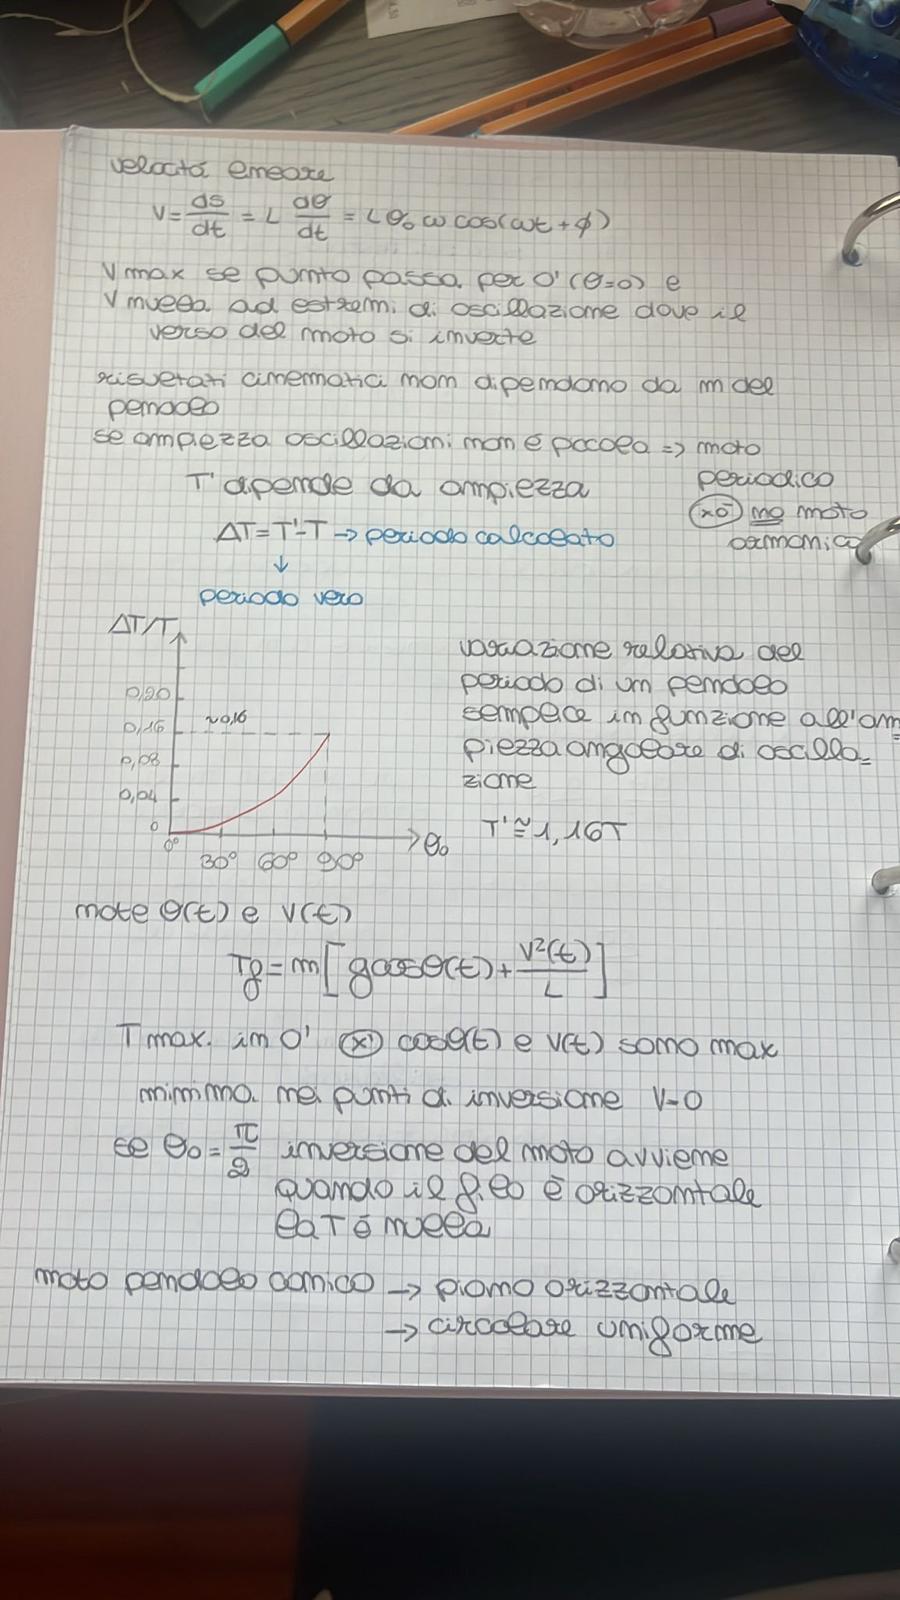 velocità lineare
V = ds/dt = L dθ/dt = Lθ₀ ω cos(ωt + φ)
V max se punto passa per O' (θ=0) e
V nulla ad estremi di oscillazione dove il
verso del moto si inverte
risultati cinematici non dipendono da m del
pendolo
se ampiezza oscillazioni non è piccola => moto
periodico
xò no moto
armonico
T' dipende da ampiezza
ΔT = T'-T → periodo calcolato
↓
periodo vero
ΔT/T
0,20
0,16
~0,16
0,08
0,04
0
0° 30° 60° 90° θ₀
variazione relativa del
periodo di un pendolo
semplice in funzione all'am
piezza angolare di oscilla=
zione
T' ≅ 1,16T
note θ(t) e V(t)
Tf = m[g cosθ(t) + V²(t)/L]
T max. in O' (x') cosθ(t) e v(t) sono max
minima nei punti di inversione V=0
se θ₀ = π/2 inversione del moto avviene
quando il filo è orizzontale
la T è nulla
moto pendolo conico → piano orizzontale
→ circolare uniforme